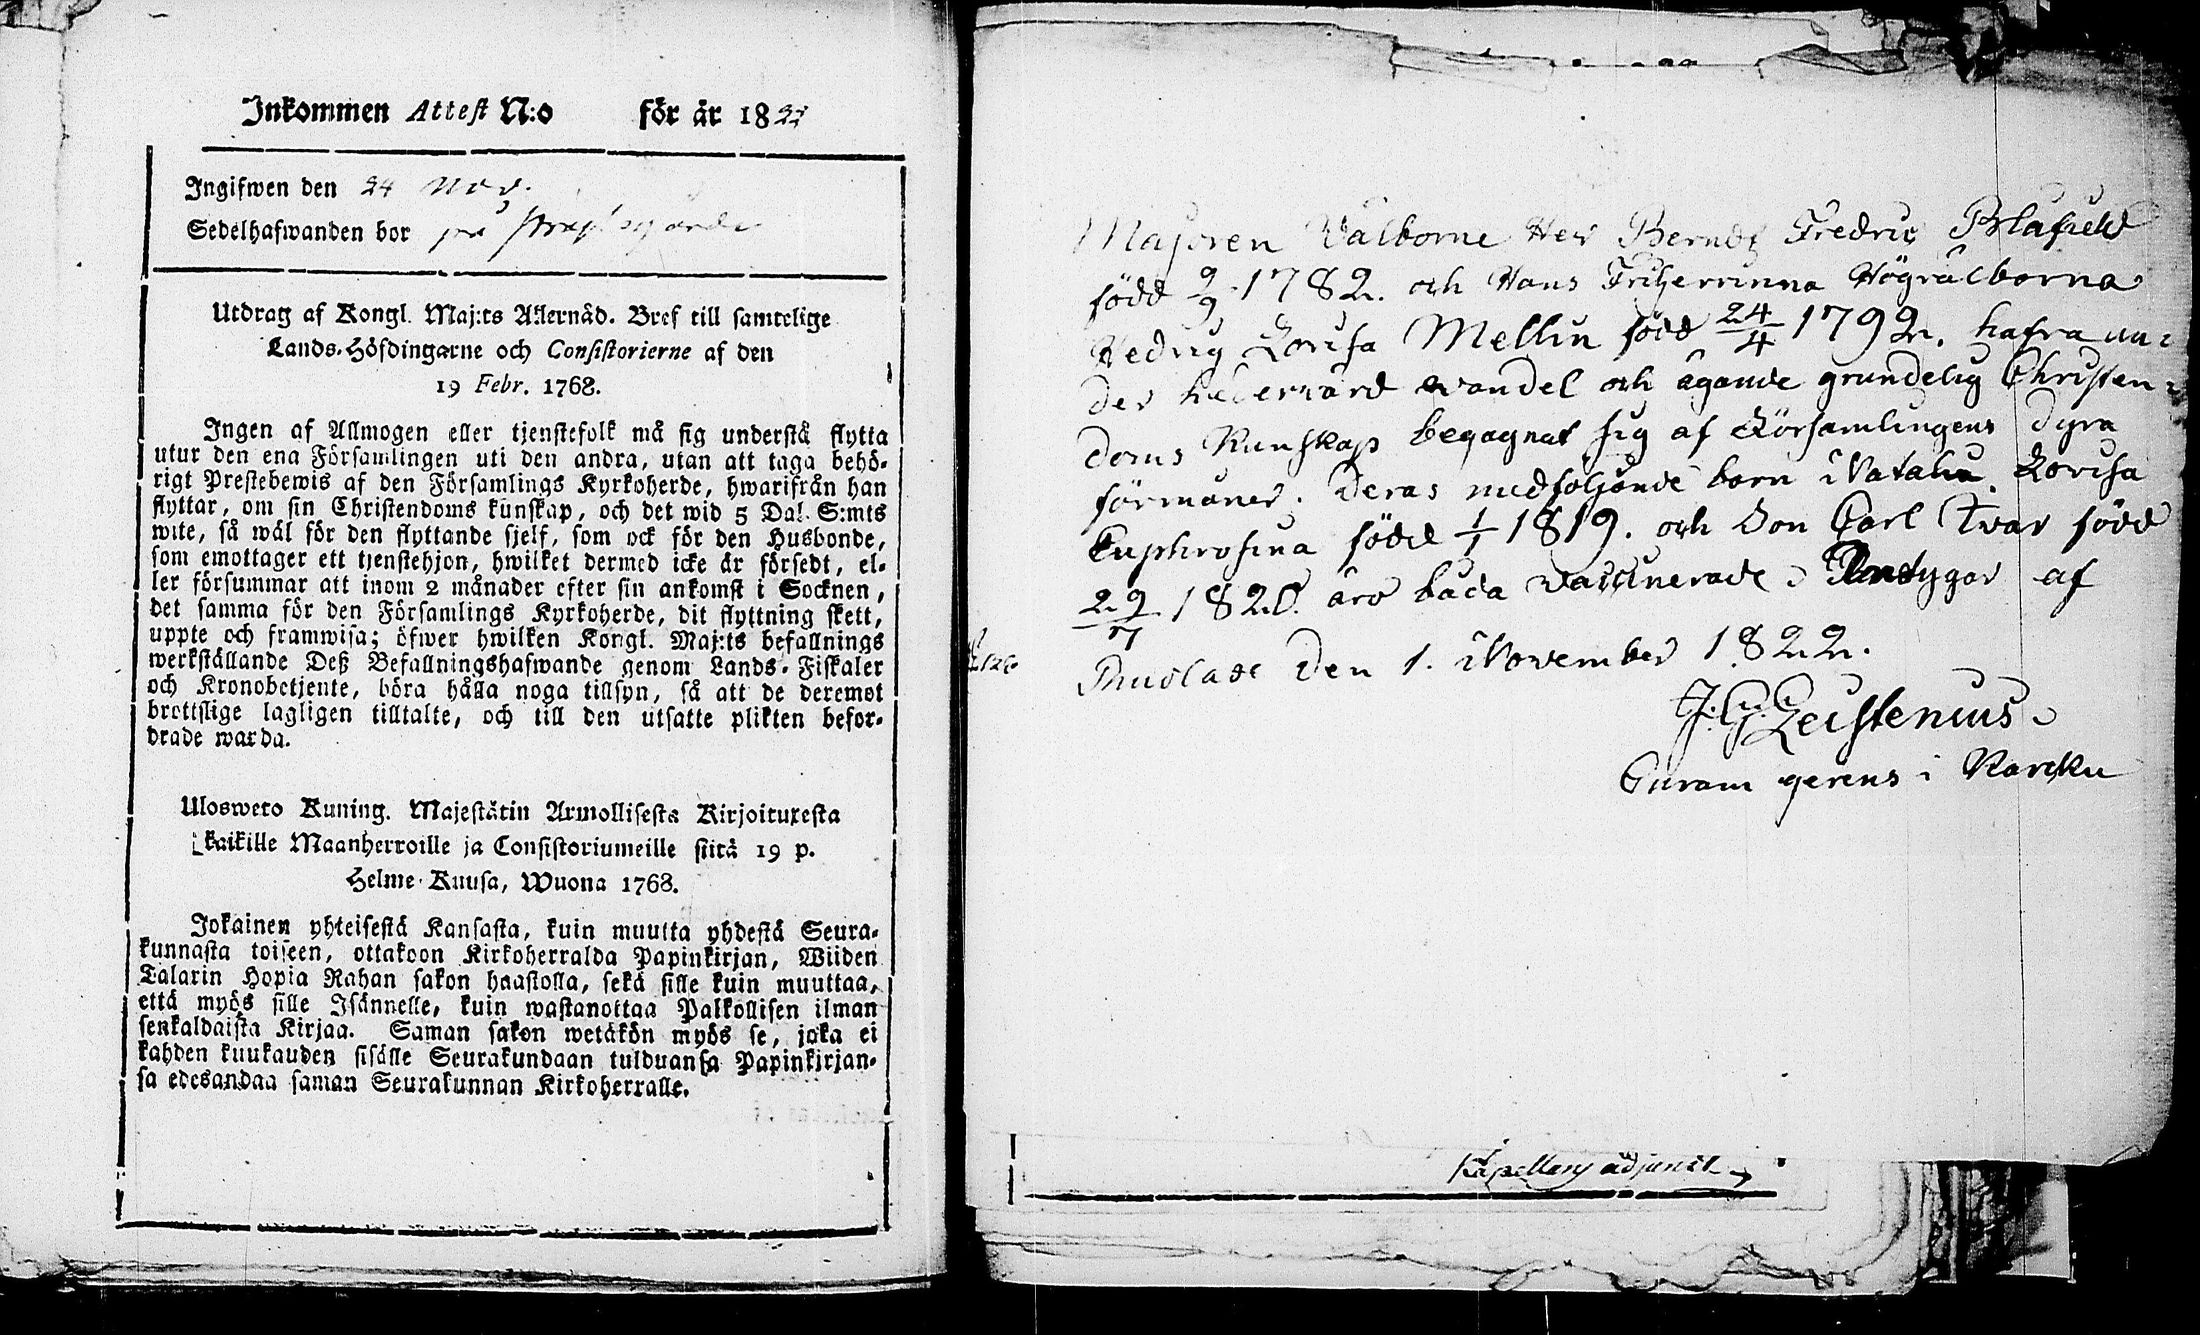 Inkommen Attest N:o för år 1822
Ingifwen den 24 Nov.
Sedelhafwanden bor på
Utdrag af Kongl. Maj:ts Allernåd. Bref till samtelige
Lands-Höfdingarne och Consistorierne af den
19 Febr. 1768.
Ingen af Allmogen eller tjenstefolk må sig understå flytta
utur den ena Församlingen uti den andra, utan att taga behö-
rigt Prestebewis af den Församlings Kyrkoherde, hwarifrån han
flyttar, om sin Christendoms kunskap, och det wid 5 Dal. S:mts
wite, så wäl för den flyttande sjelf, som ock för den Husbonde,
som emottager ett tjenstehjon, hwilket dermed icke är försedt, el-
ler försummar att inom 2 månader efter sin ankomst i Socknen,
det samma för den Församlings Kyrkoherde, dit flyttning skett,
uppte och framwisa; öfwer hwilken Kongl. Maj:ts befallnings
werkställande Deß Befallningshafwande genom Lands-Fiskaler
och Kronobetjente, böra hålla noga tillsyn, så att de deremot
brottslige lagligen tilltalte, och till den utsatte plikten befor-
drade warda.
Ulosweto Kuning. Majestätin Armollisesta Kirjoituxesta
kaikille Maanherroille ja Consistoriumeille siitä 19 p.
Helme-Kuusa, Wuona 1768.
Jokainen yhteisestä Kansasta, kuin muutta yhdestä Seura-
kunnasta toiseen, ottakoon Kirkoherralda Papinkirjan, Wiiden
Talarin Hopia Rahan sakon haastolla, sekä sille kuin muuttaa,
että myös sille Isännelle, kuin wastanottaa Palkollisen ilman
senkaldaista Kirjaa. Saman sakon wetäkön myös se, joka ei
kahden kuukauden sisälle Seurakundaan tulduansa Papinkirjan-
sa edesandaa saman Seurakunnan Kirkoherralle.
Majoren Välborne Her Berndt Fredric Blåfield
född 2/9 1782. och Hans Friherrinna Högvälborna
Hedvig Lovisa Mellin född 24/4 1792. hafva un=
der hedervärd vandel och ägande grundelig Christen=
doms Kunskap begagnat sig af Församlingens dyra
förmåner. Deras medföljande barn Natalia Lovisa
Euphrosina född 1/1 1819. och Son Carl Ivar född
29/7 1820. äro båda vaccinerade, Betygar af
den 1. November 1822.
J. G. Zeistenius.
Curam gerens i Karisku
Kapellans adjunct